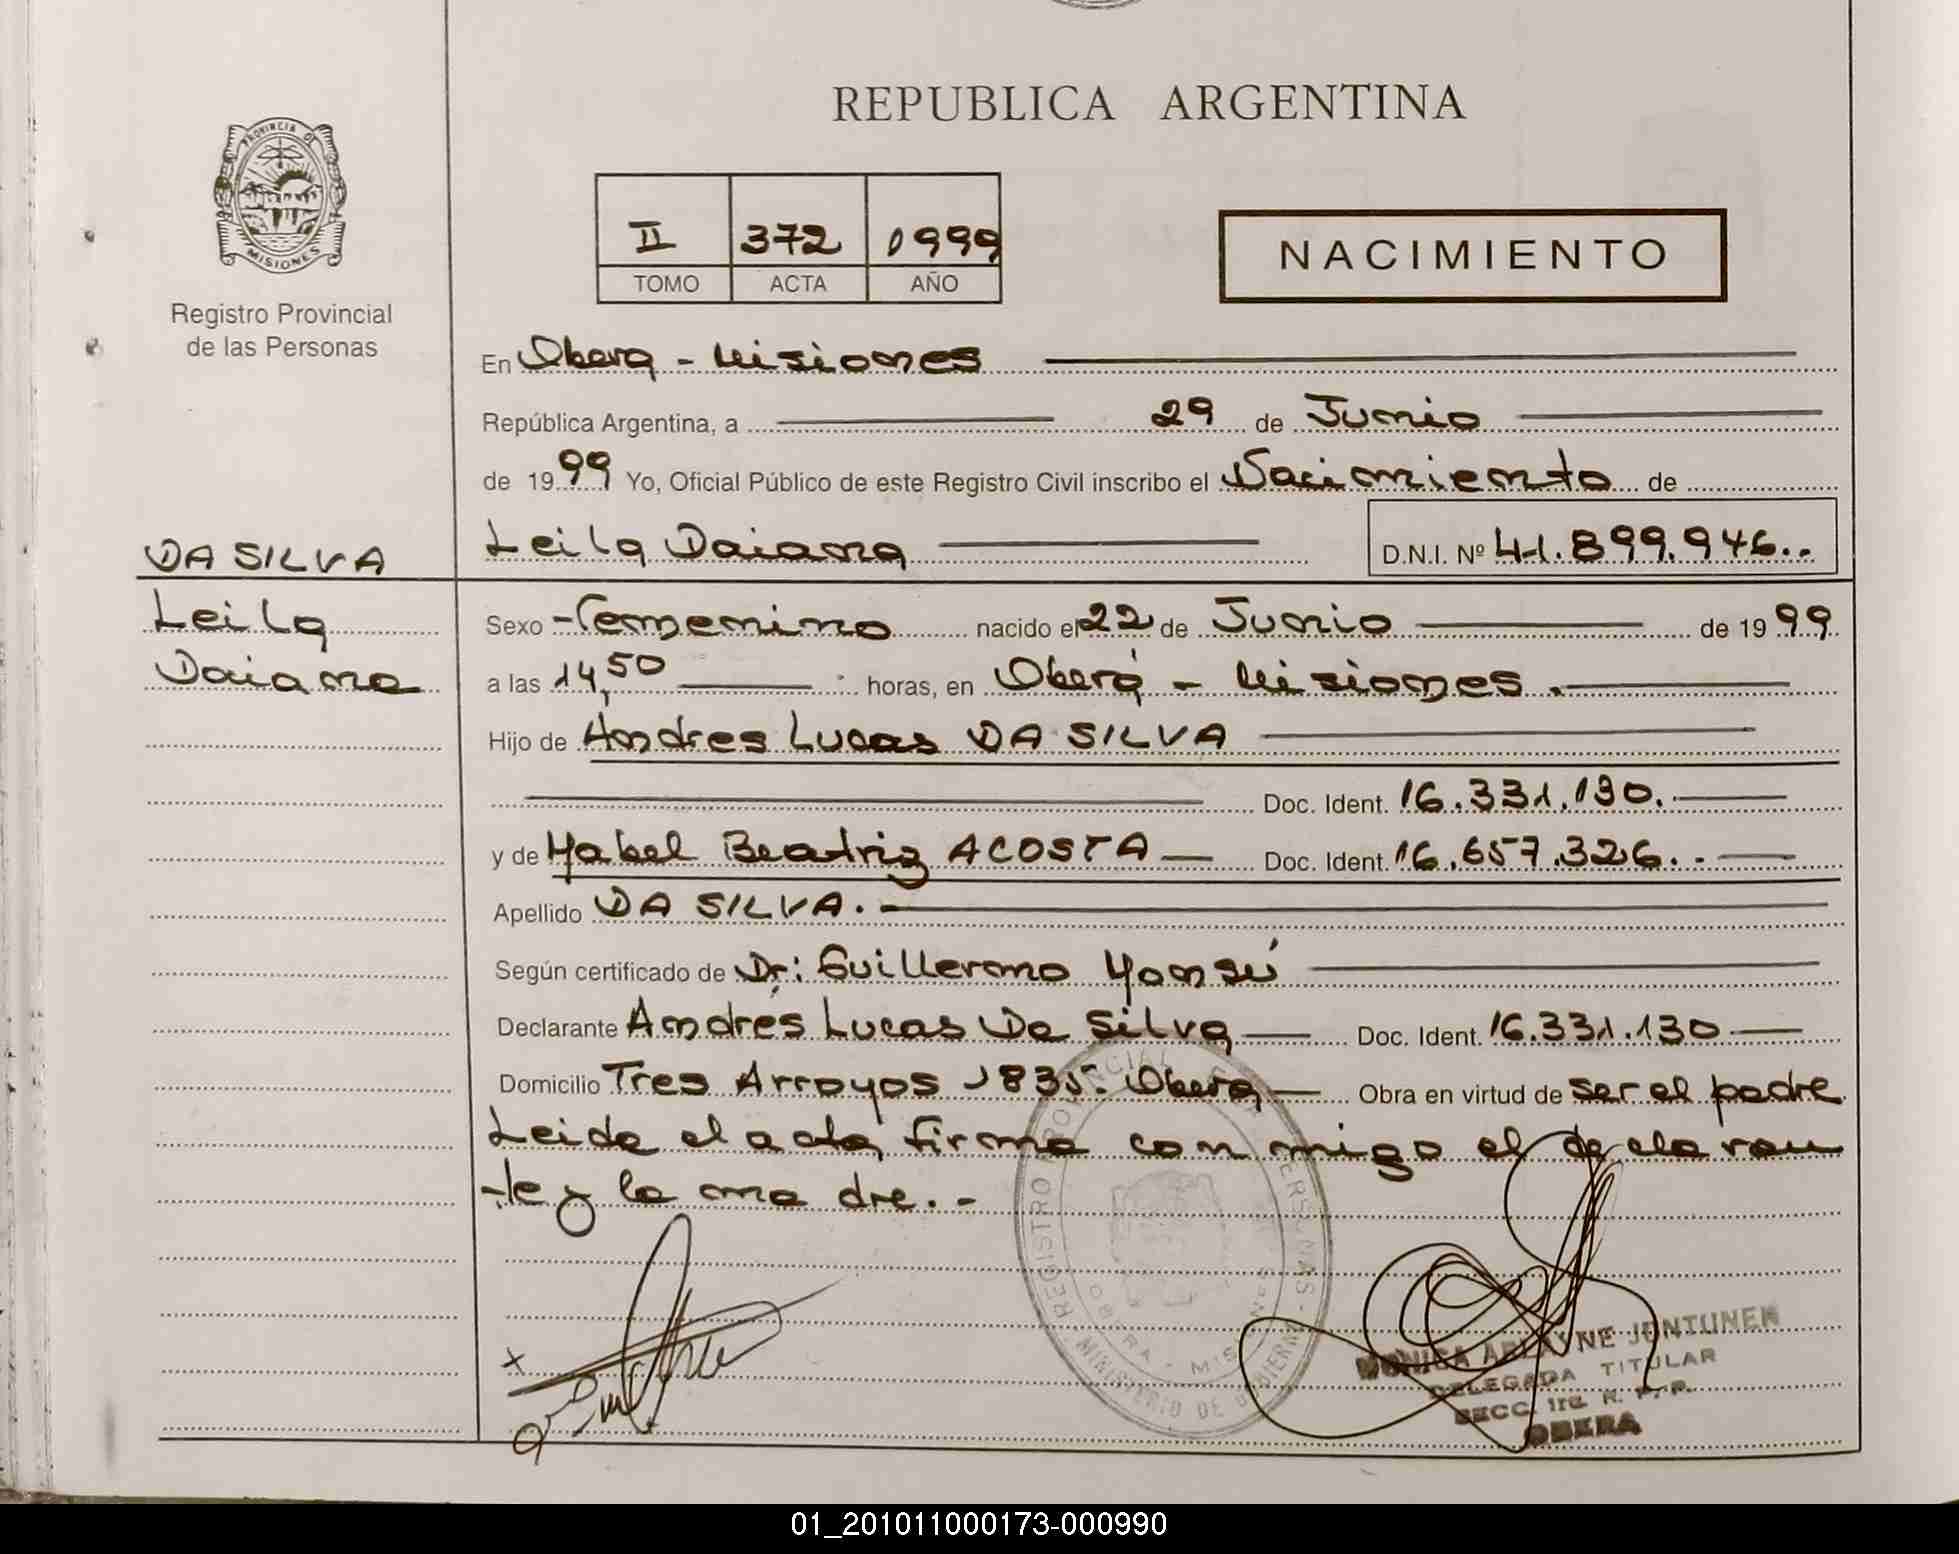 REPUBLICA ARGENTINA
PROVINCIA DE
MISIONES
Registro Provincial
de las Personas
II 372 1999
TOMO ACTA AÑO
NACIMIENTO
En Obera - Misiones
República Argentina, a 29 de Junio
de 1999 Yo, Oficial Público de este Registro Civil inscribo el Nacimiento de
DA SILVA
Leila Daiana D.N.I. Nº 41.899.946..
Leila
Daiana
Sexo Femenino nacido el 22 de Junio de 1999
a las 14,50 horas, en Oberá - Misiones.
Hijo de Andres Lucas DA SILVA
Doc. Ident. 16.331.130.
y de Mabel Beatriz ACOSTA Doc. Ident. 16.657.326..
Apellido DA SILVA.
Según certificado de Dr: Guillermo
Declarante Andrés Lucas Da Silva Doc. Ident. 16.331.130
Domicilio Tres Arroyos 1835. Obera Obra en virtud de ser el padre
Leida el acta, firma con migo el declaran
te y la madre.-
REGISTRO PROVINCIAL DE LAS PERSONAS -
OBERA - MISIONES
MINISTERIO DE GOBIERNO
MONICA JONTUNEN
DELEGADA TITULAR
SECC. 1ra. R. P. P.
OBERA
01_201011000173-000990